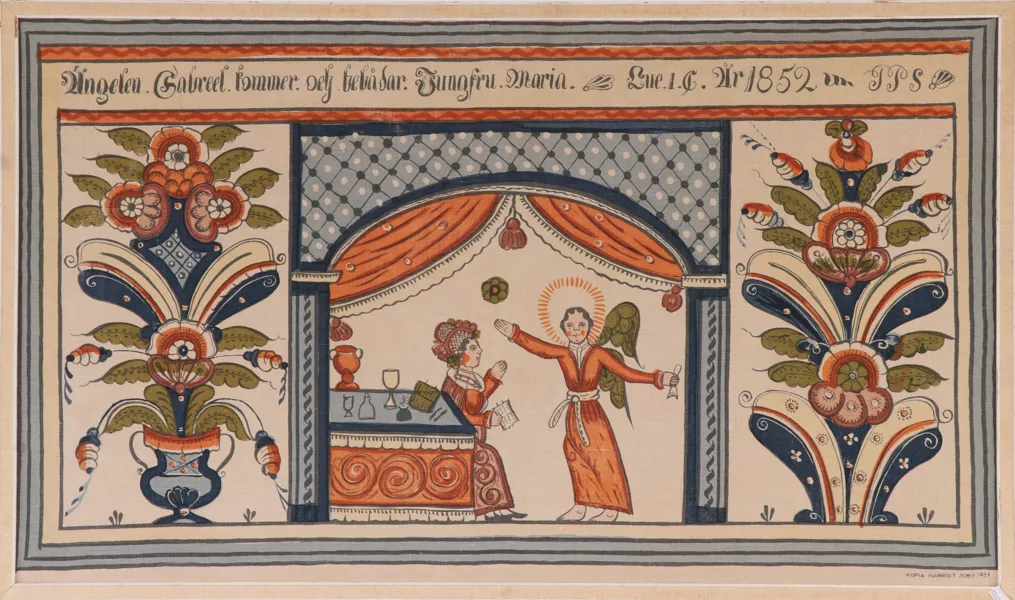 Ängelen . Gabreel . kommer . och . bebådar . Jungfru . Maria . Luc . 1 . C . År 1852 J P S
KOPIA HARRIET